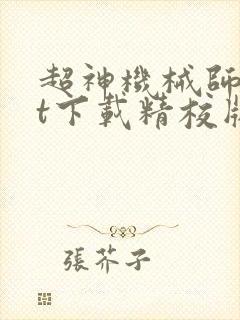 超神機械師
t下載精校
張芥子